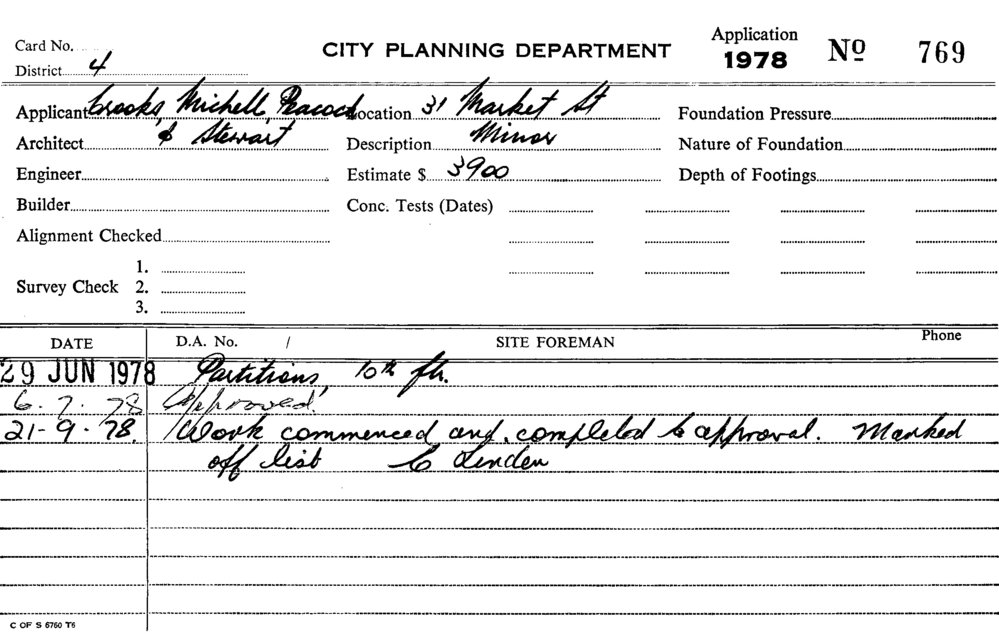 Card No.
CITY PLANNING DEPARTMENT
Application
1978 Nº 769
District 4
Applicant Crooks, Michell, Peacock Location 31 Market St Foundation Pressure
& Stewart
Architect Description Minor Nature of Foundation
Engineer Estimate $ 3900 Depth of Footings
Builder Conc. Tests (Dates)
Alignment Checked
1.
Survey Check 2.
3.
DATE D.A. No. / SITE FOREMAN Phone
29 JUN 1978 Partitions, 10th flr.
6. 7. 78 Approved.
21-9-78. Work commenced and completed to approval. Marked
off list C Linden
C OF S 6760 T6